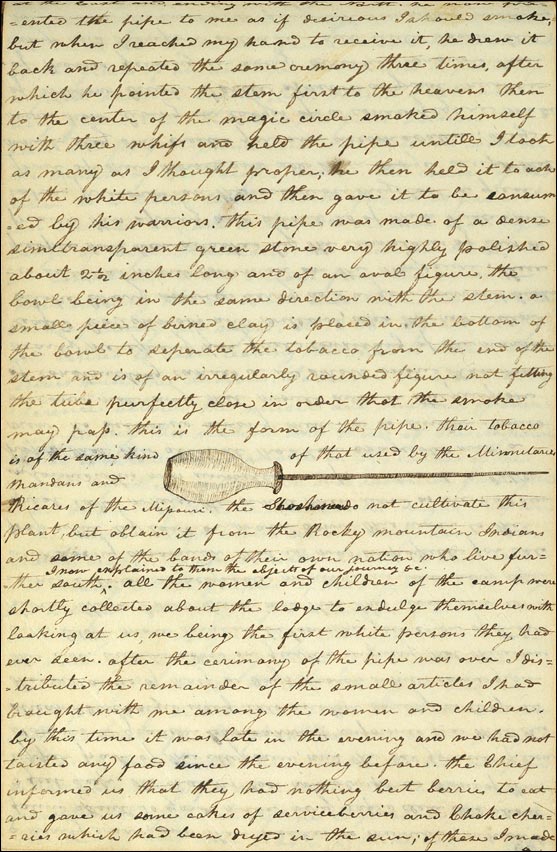 at the East and ending with the North. he then pre=
=ented the pipe to me as if desireous I should smoke,
but when I reached my hand to receive it, he drew it
back and repeated the same cremony three times, after
which he pointed the stem first to the heavens then
to the center of the magic circle smoked himself
with three whifs and held the pipe untill I took
as many as I thought proper; he then held it to each
of the white persons and then gave it to be consum
=ed by his warriors. this pipe was made of a dense
simitransparent green stone very highly polished
about 2½ inches long and of an oval figure, the
bowl being in the same direction with the stem. a
small piece of birned clay is placed in the bottom of
the bowl to seperate the tobacco from the end of the
stem and is of an irregularly rounded figure not fitting
the tube purfectly close in order that the smoke
may pass. this is the form of the pipe. their tobacco
is of the same kind of that used by the Minnetares
Mandans and
Ricares of the Missouri. the Shoshonees do not cultivate this
plant, but obtain it from the Rocky mountain Indians
and some of the bands of their own nation who live fur=
I now explained to them the objects of our journey &c.
=ther south, all the women and children of the camp were
shortly collected about the lodge to endulge themselves with
looking at us, we being the first white persons they had
ever seen. after the cerimony of the pipe was over I dis=
=tributed the remainder of the small articles I had
brought with me among the women and children.
by this time it was late in the evening and we had not
taisted any food since the evening before. the Chief
informed us that they had nothing but berries to eat
and gave us some cakes of serviceberries and Choke cher=
=ries which had been dryed in the sun; of these I made